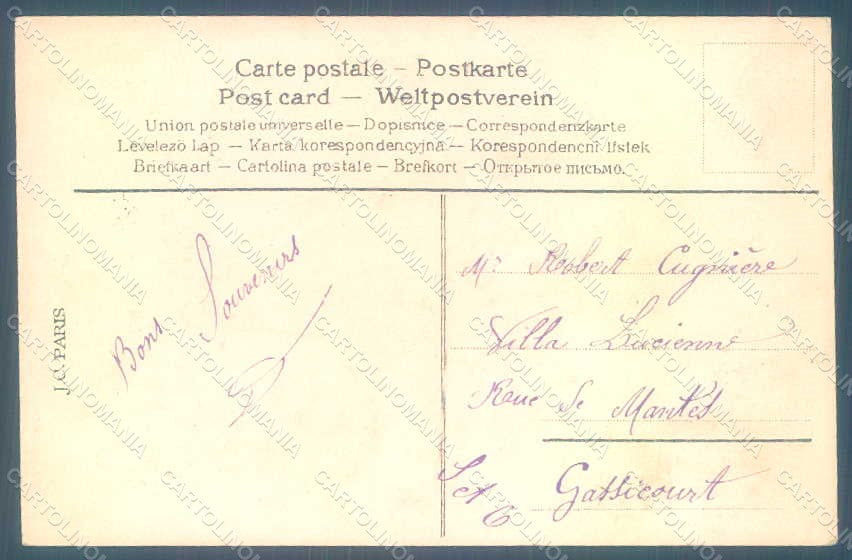 Carte postale – Postkarte
Post card — Weltpostverein
Union postale universelle — Dopisnice — Correspondenzkarte
Levelező Lap — Karta korespondencyjna — Korespondenční lístek
Briefkaart — Cartolina postale — Brefkort — Открытое письмо.
J.C. PARIS
Bons Souvenirs
Mr Robert Cugnière
Villa Lucienne
Rue de Mantes
Gassicourt
S et O
CARTOLINOMANIA